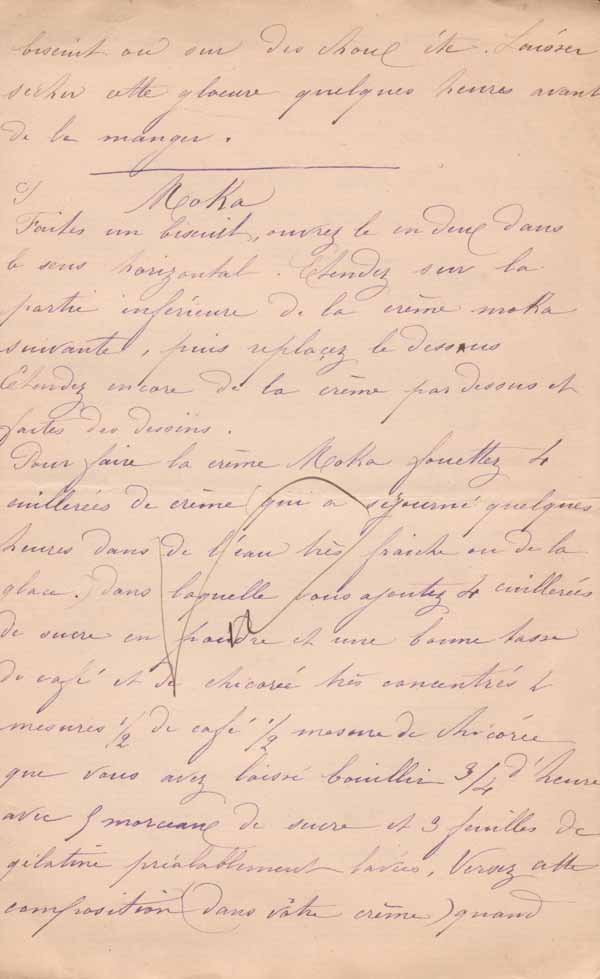 biscuit ou sur des choux etc. Laisser
secher cette glaçure quelques heures avant
de la manger.
Moka
Faites un biscuit, ouvrez le en deux dans
le sens horizontal. Etendez sur la
partie inférieure de la crème moka
suivante, puis replaçez le dessus
Etendez encore de la crème par dessus et
faites des dessins.
Pour faire la crème Moka fouettez 4
cuillerées de crème (qui a séjourné quelques
heures dans de l'eau très fraiche ou de la
glace.) dans laquelle vous ajoutez 4 cuillerées
de sucre en poudre et une bonne tasse
de café et de chicorée très concentrés 4
mesures 1/2 de café 1/2 mesure de chicorée
que vous avez laissé bouillir 3/4 d'heure
avec 5 morceaux de sucre et 3 feuilles de
gélatine préalablement lavées. Versez cette
composition (dans votre crème) quand